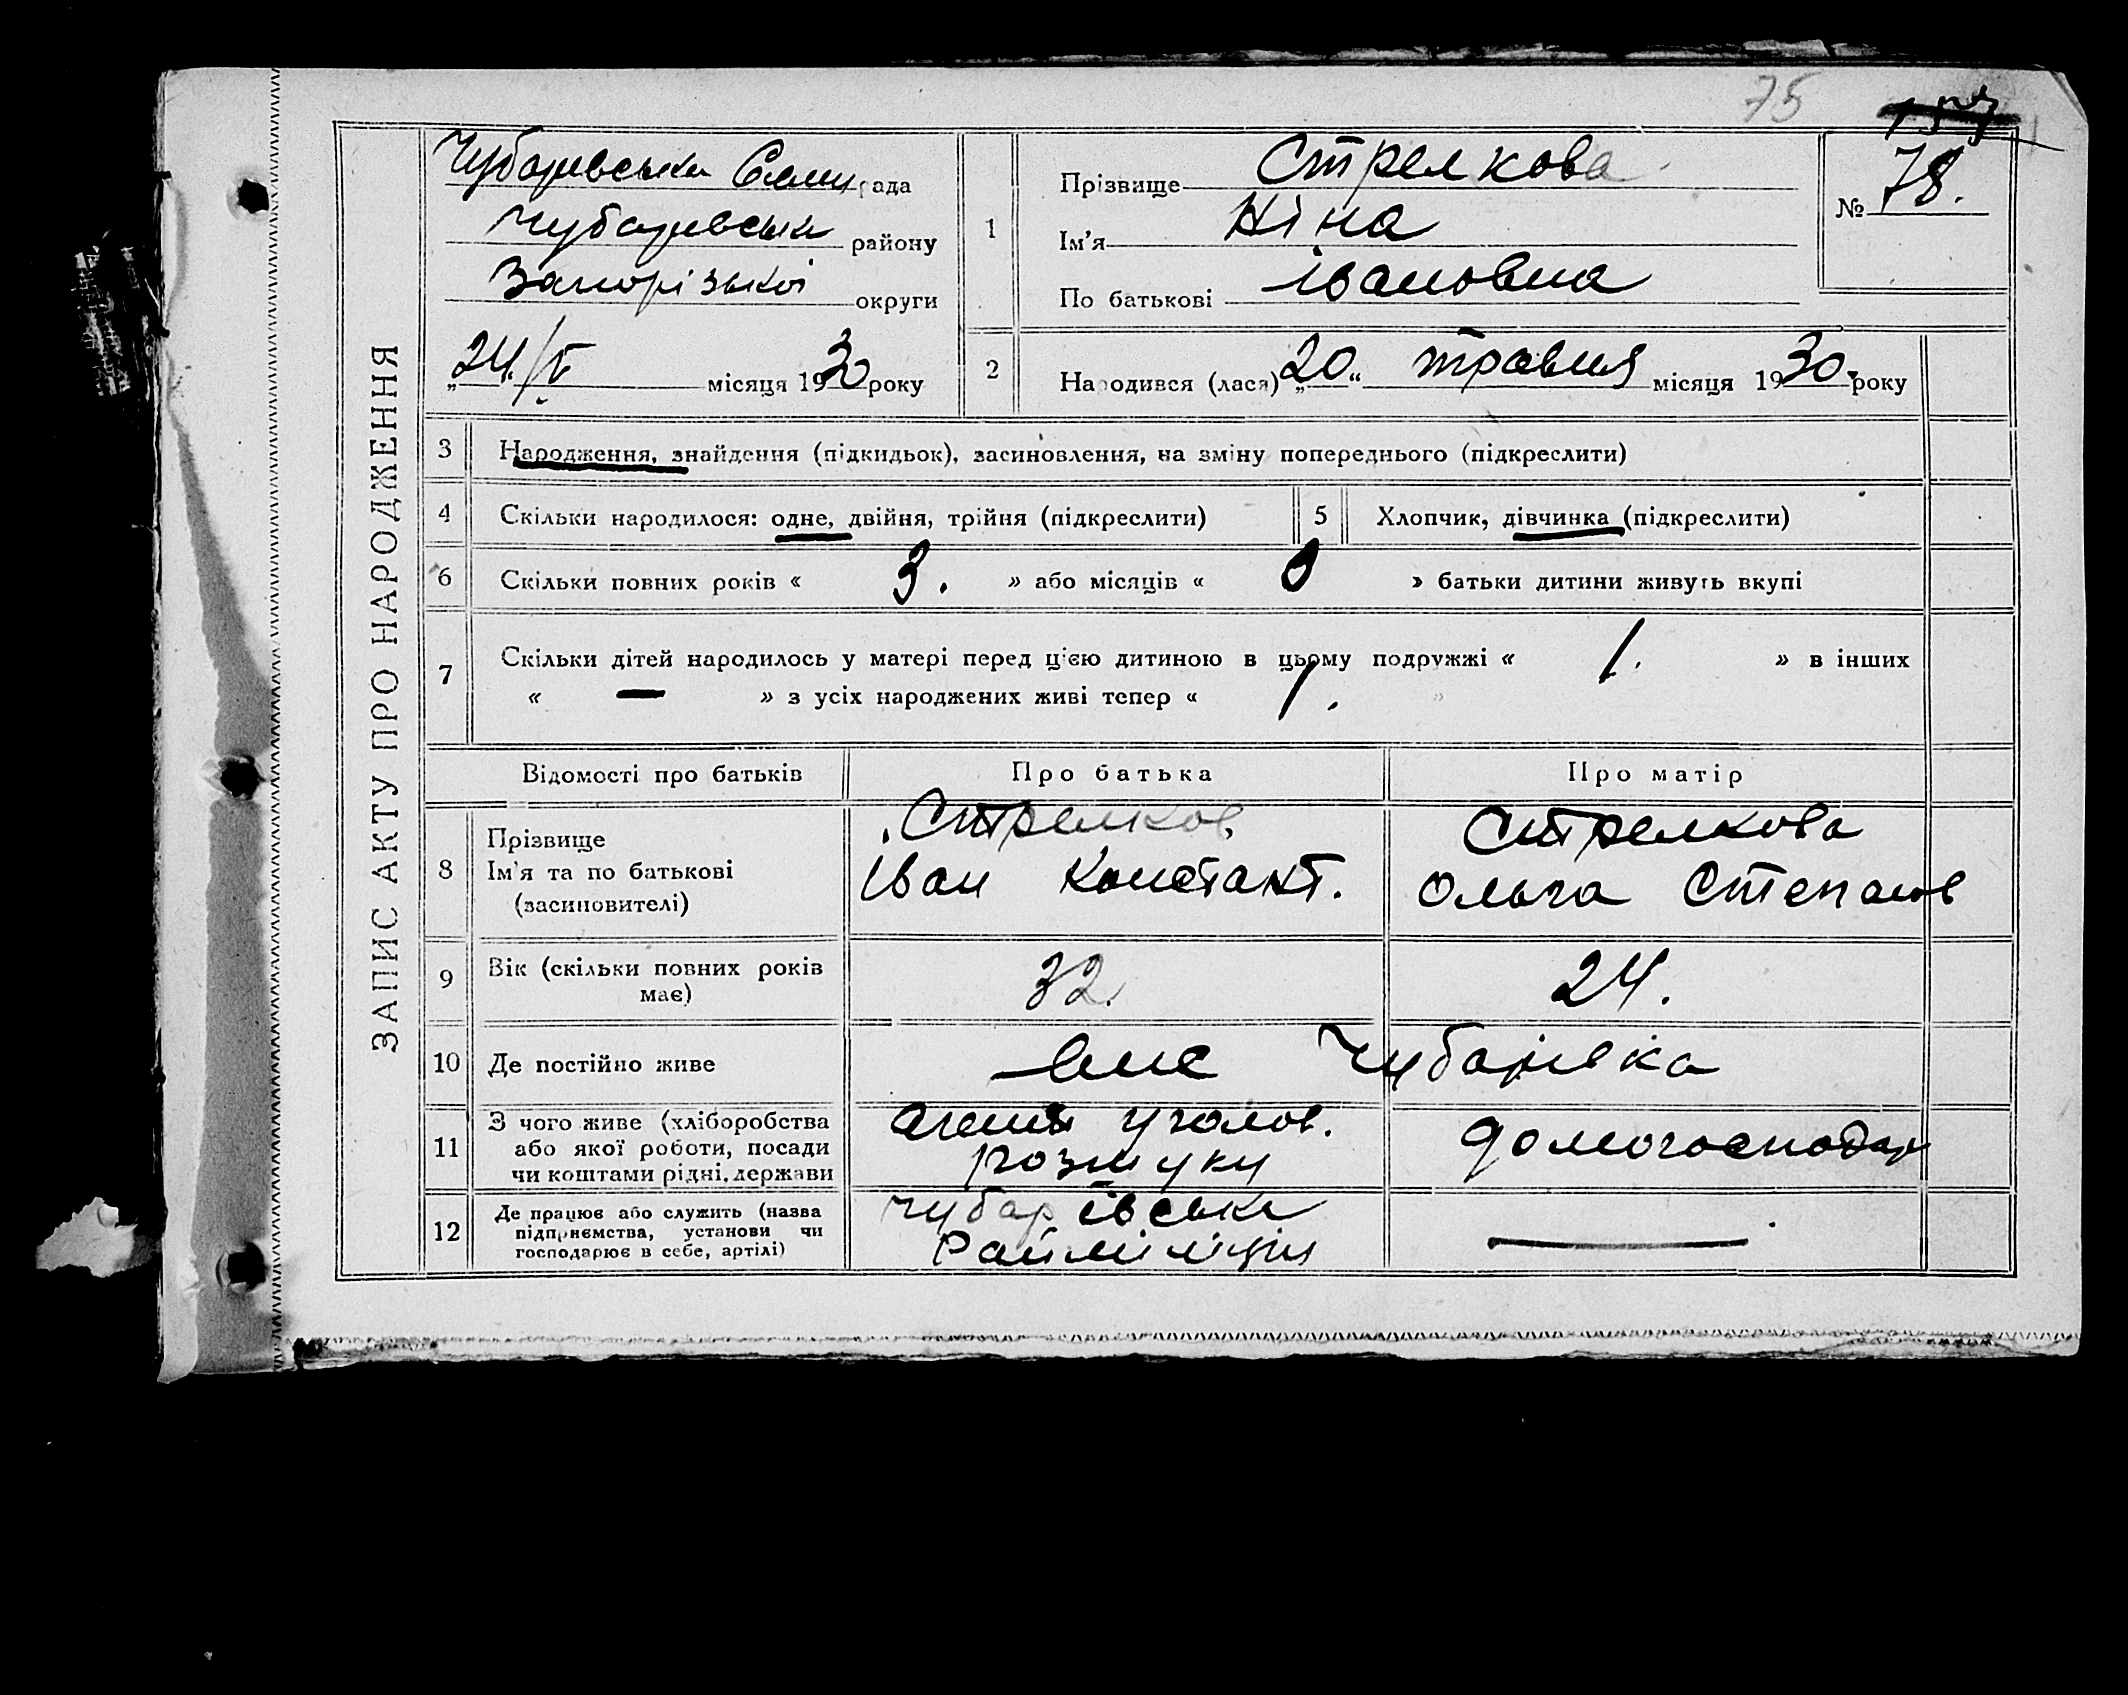 75
78.
ЗАПИС АКТУ ПРО НАРОДЖЕННЯ
Чубарівська Сели рада
Чубарівськ району
Запорізької округи
„24“/V місяця 1930 року
1
Прізвище Стрелкова
Ім’я Ніна
По батькові Івановна
№
2
Народився (лася) „20“ травня місяця 1930. року
3 Народження, знайдення (підкидьок), засиновлення, на зміну попереднього (підкреслити)
4 Скільки народилося: одне, двійня, трійня (підкреслити) 5 Хлопчик, дівчинка (підкреслити)
6 Скільки повних років « 3. » або місяців « 0 » батьки дитини живуть вкупі
7 Скільки дітей народилось у матері перед цією дитиною в цьому подружжі « 1. » в інших
« — » з усіх народжених живі тепер « 1. »
Відомості про батьків Про батька Про матір
8 Прізвище
Ім’я та по батькові
(засиновителі)
Стрелков
Іван Констант.
Стрелкова
Ольга Степанов
9 Вік (скільки повних років
має)
32.
24.
10 Де постійно живе
Чубарівка
11 З чого живе (хліборобства
або якої роботи, посади
чи коштами рідні, держави
агент уголов.
розшуку
домогосподар
12 Де працює або служить (назва
підприємства, установи чи
господарює в себе, артілі)
Чубарівська
Райміліція
—